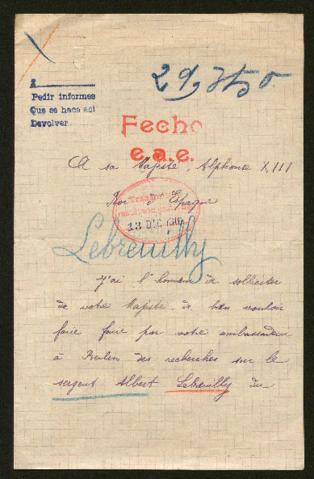 A
Pedir informes
Que se haca aci
Devolver
Fecho
e.a.e.
A sa Majesté, Alphonse XIII
Roi d'Espagne
13 DIC 1916
Lebreuilly
J'ai l'honneur de solliciter
de votre Majesté de bien vouloir
faire faire par votre ambassadeur
à Berlin des recherches sur le
sergent Albert Lebreuilly du